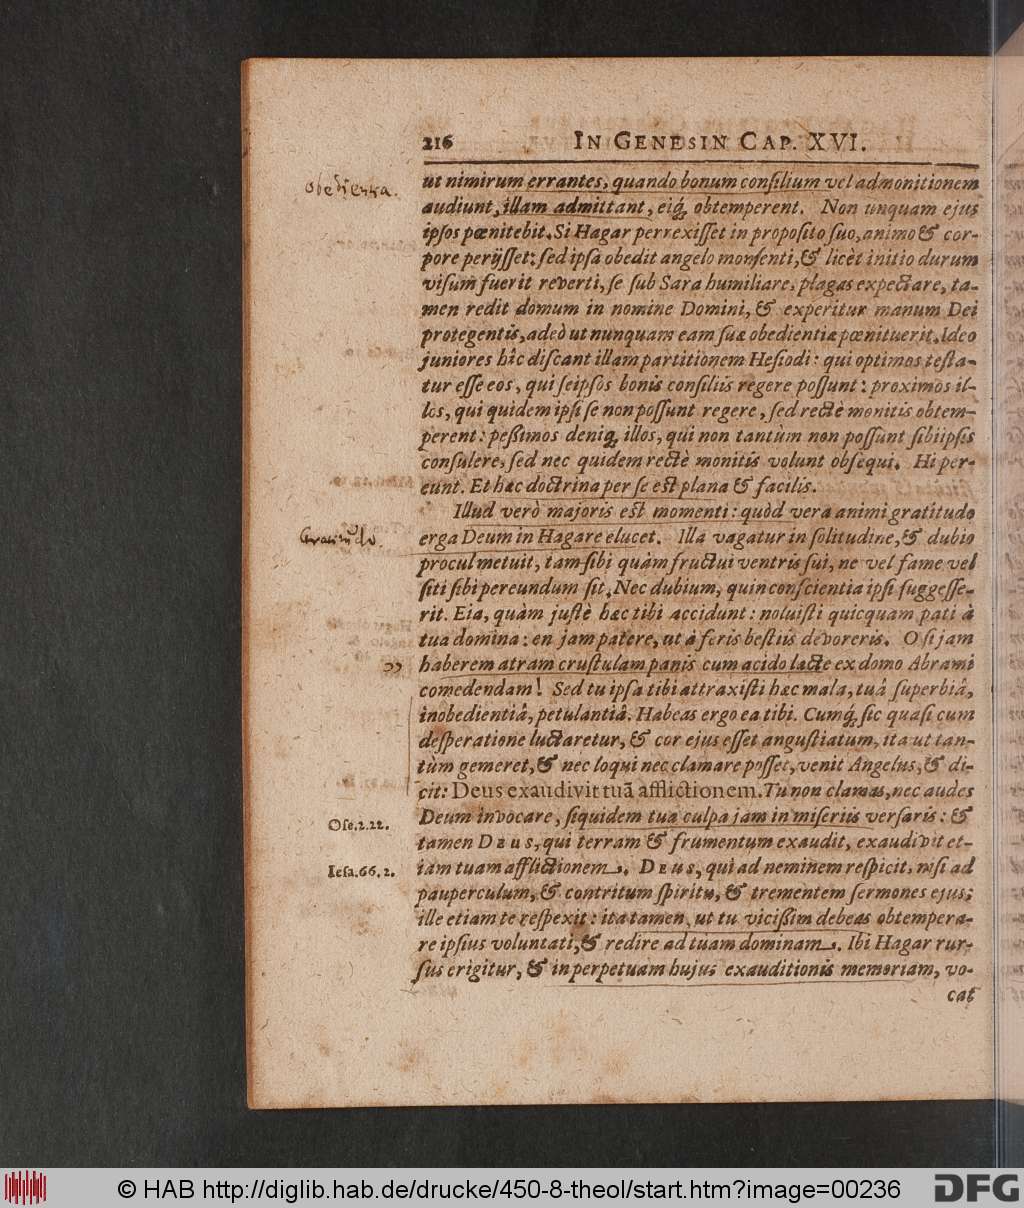 216 IN GENESIN CAP. XVI.
obedientia.
ut nimirum errantes, quando bonum consilium vel admonitionem
audiunt, illam admittant, eiq́; obtemperent. Non unquam ejus
ipsos pœnitebit. Si Hagar perrexisset in proposito suo, animo & cor-
pore perijsset: sed ipsa obedit angelo monenti, & licèt initio durum
visum fuerit reverti, se sub Sara humiliare, plagas expectare, ta-
men redit domum in nomine Domini, & experitur manum Dei
protegentis, adeò ut nunquam eam suæ obedientiæ pœnituerit. Ideo
juniores hîc discant illam partitionem Hesiodi: qui optimos testa-
tur esse eos, qui seipsos bonis consiliis regere possunt: proximos il-
los, qui quidem ipsi se non possunt regere, sed rectè monitis obtem-
perent: peßimos deniq; illos, qui non tantùm non possunt sibiipsis
consulere, sed nec quidem rectè monitis volunt obsequi. Hi per-
eunt. Et hæc doctrina per se est plana & facilis.
Illud verò majoris est momenti: quòd vera animi gratitudo
Gratitudo.
erga Deum in Hagare elucet. Illa vagatur in solitudine, & dubio
procul metuit, tam sibi quàm fructui ventris sui, ne vel fame vel
siti sibi pereundum sit. Nec dubium, quin conscientia ipsi suggesse-
rit. Eia, quàm justè hæc tibi accidunt: noluisti quicquam pati à
tua domina: en jam patere, ut à feris bestiis devoreris. O si jam
haberem atram crustulam panis cum acido lacte ex domo Abrami
comedendam! Sed tu ipsa tibi attraxisti hæc mala, tuâ superbiâ,
inobedientiâ, petulantiâ. Habeas ergo ea tibi. Cumq́; sic quasi cum
desperatione luctaretur, & cor ejus esset angustiatum, ita ut tan-
tùm gemeret, & nec loqui nec clamare posset, venit Angelus, & di-
cit: Deus exaudivit tuã afflictionem. Tu non clamas, nec audes
Deum invocare, siquidem tua culpa jam in miseriis versaris: &
Ose. 2. 22.
tamen DEUS, qui terram & frumentum exaudit, exaudivit et-
iam tuam afflictionem. DEUS, qui ad neminem respicit, nisi ad
Iesa. 66. 2.
pauperculum, & contritum spiritu, & trementem sermones ejus;
ille etiam te respexit: ita tamen, ut tu vicißim debeas obtempera-
re ipsius voluntati, & redire ad tuam dominam. Ibi Hagar rur-
sus erigitur, & in perpetuam hujus exauditionis memoriam, vo-
cat
© HAB http://diglib.hab.de/drucke/450-8-theol/start.htm?image=00236
DFG